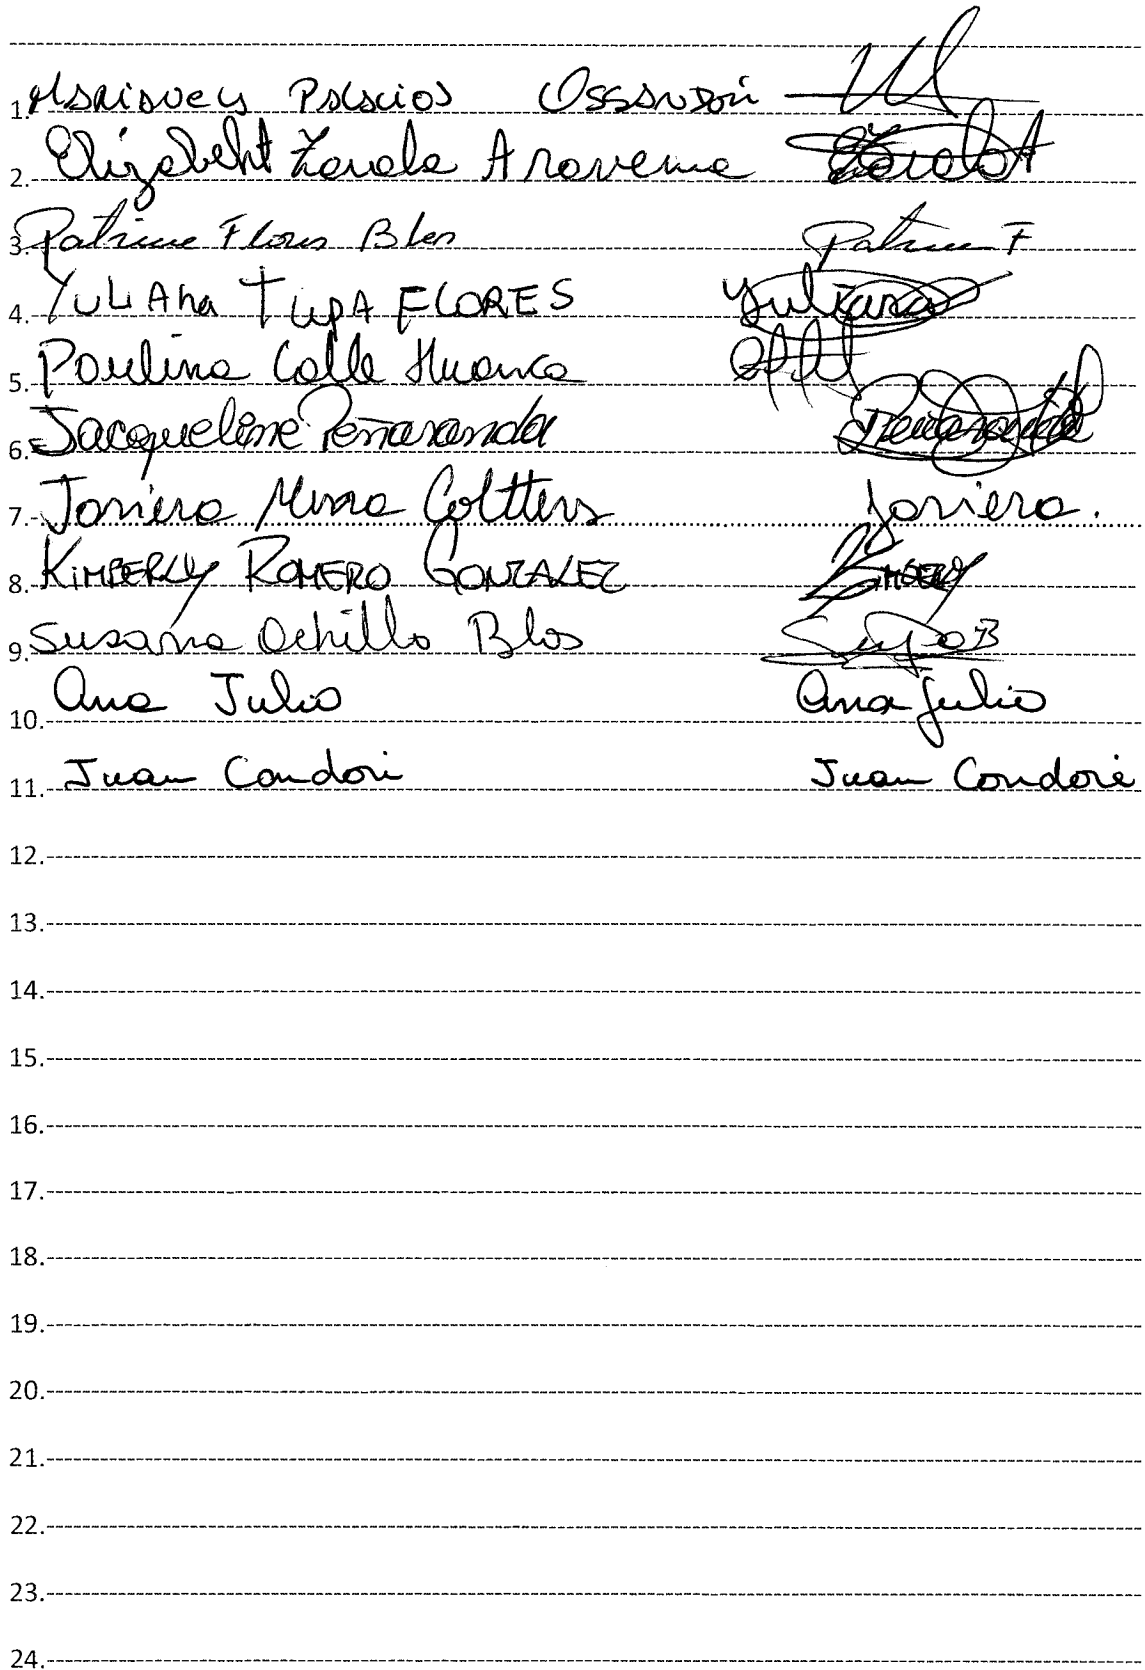 1. Marianela Palacios Ossandón
2. Elizabeht Zavala Aravena
3. Patrice Flores Blas Patrice F
4. YULIAna TUPA FLORES Yuliana
5. Paulina Calle Huanca
6. Jacqueline Peñaranda Peñaranda
7. Javiera Mena Coltters Javiera.
8. KIMBERLY ROMERO GONZALEZ KIMBERLY
9. Susana Achillo Blas
10. Ana Julio Ana Julio
11. Juan Condori Juan Condori
12.
13.
14.
15.
16.
17.
18.
19.
20.
21.
22.
23.
24.